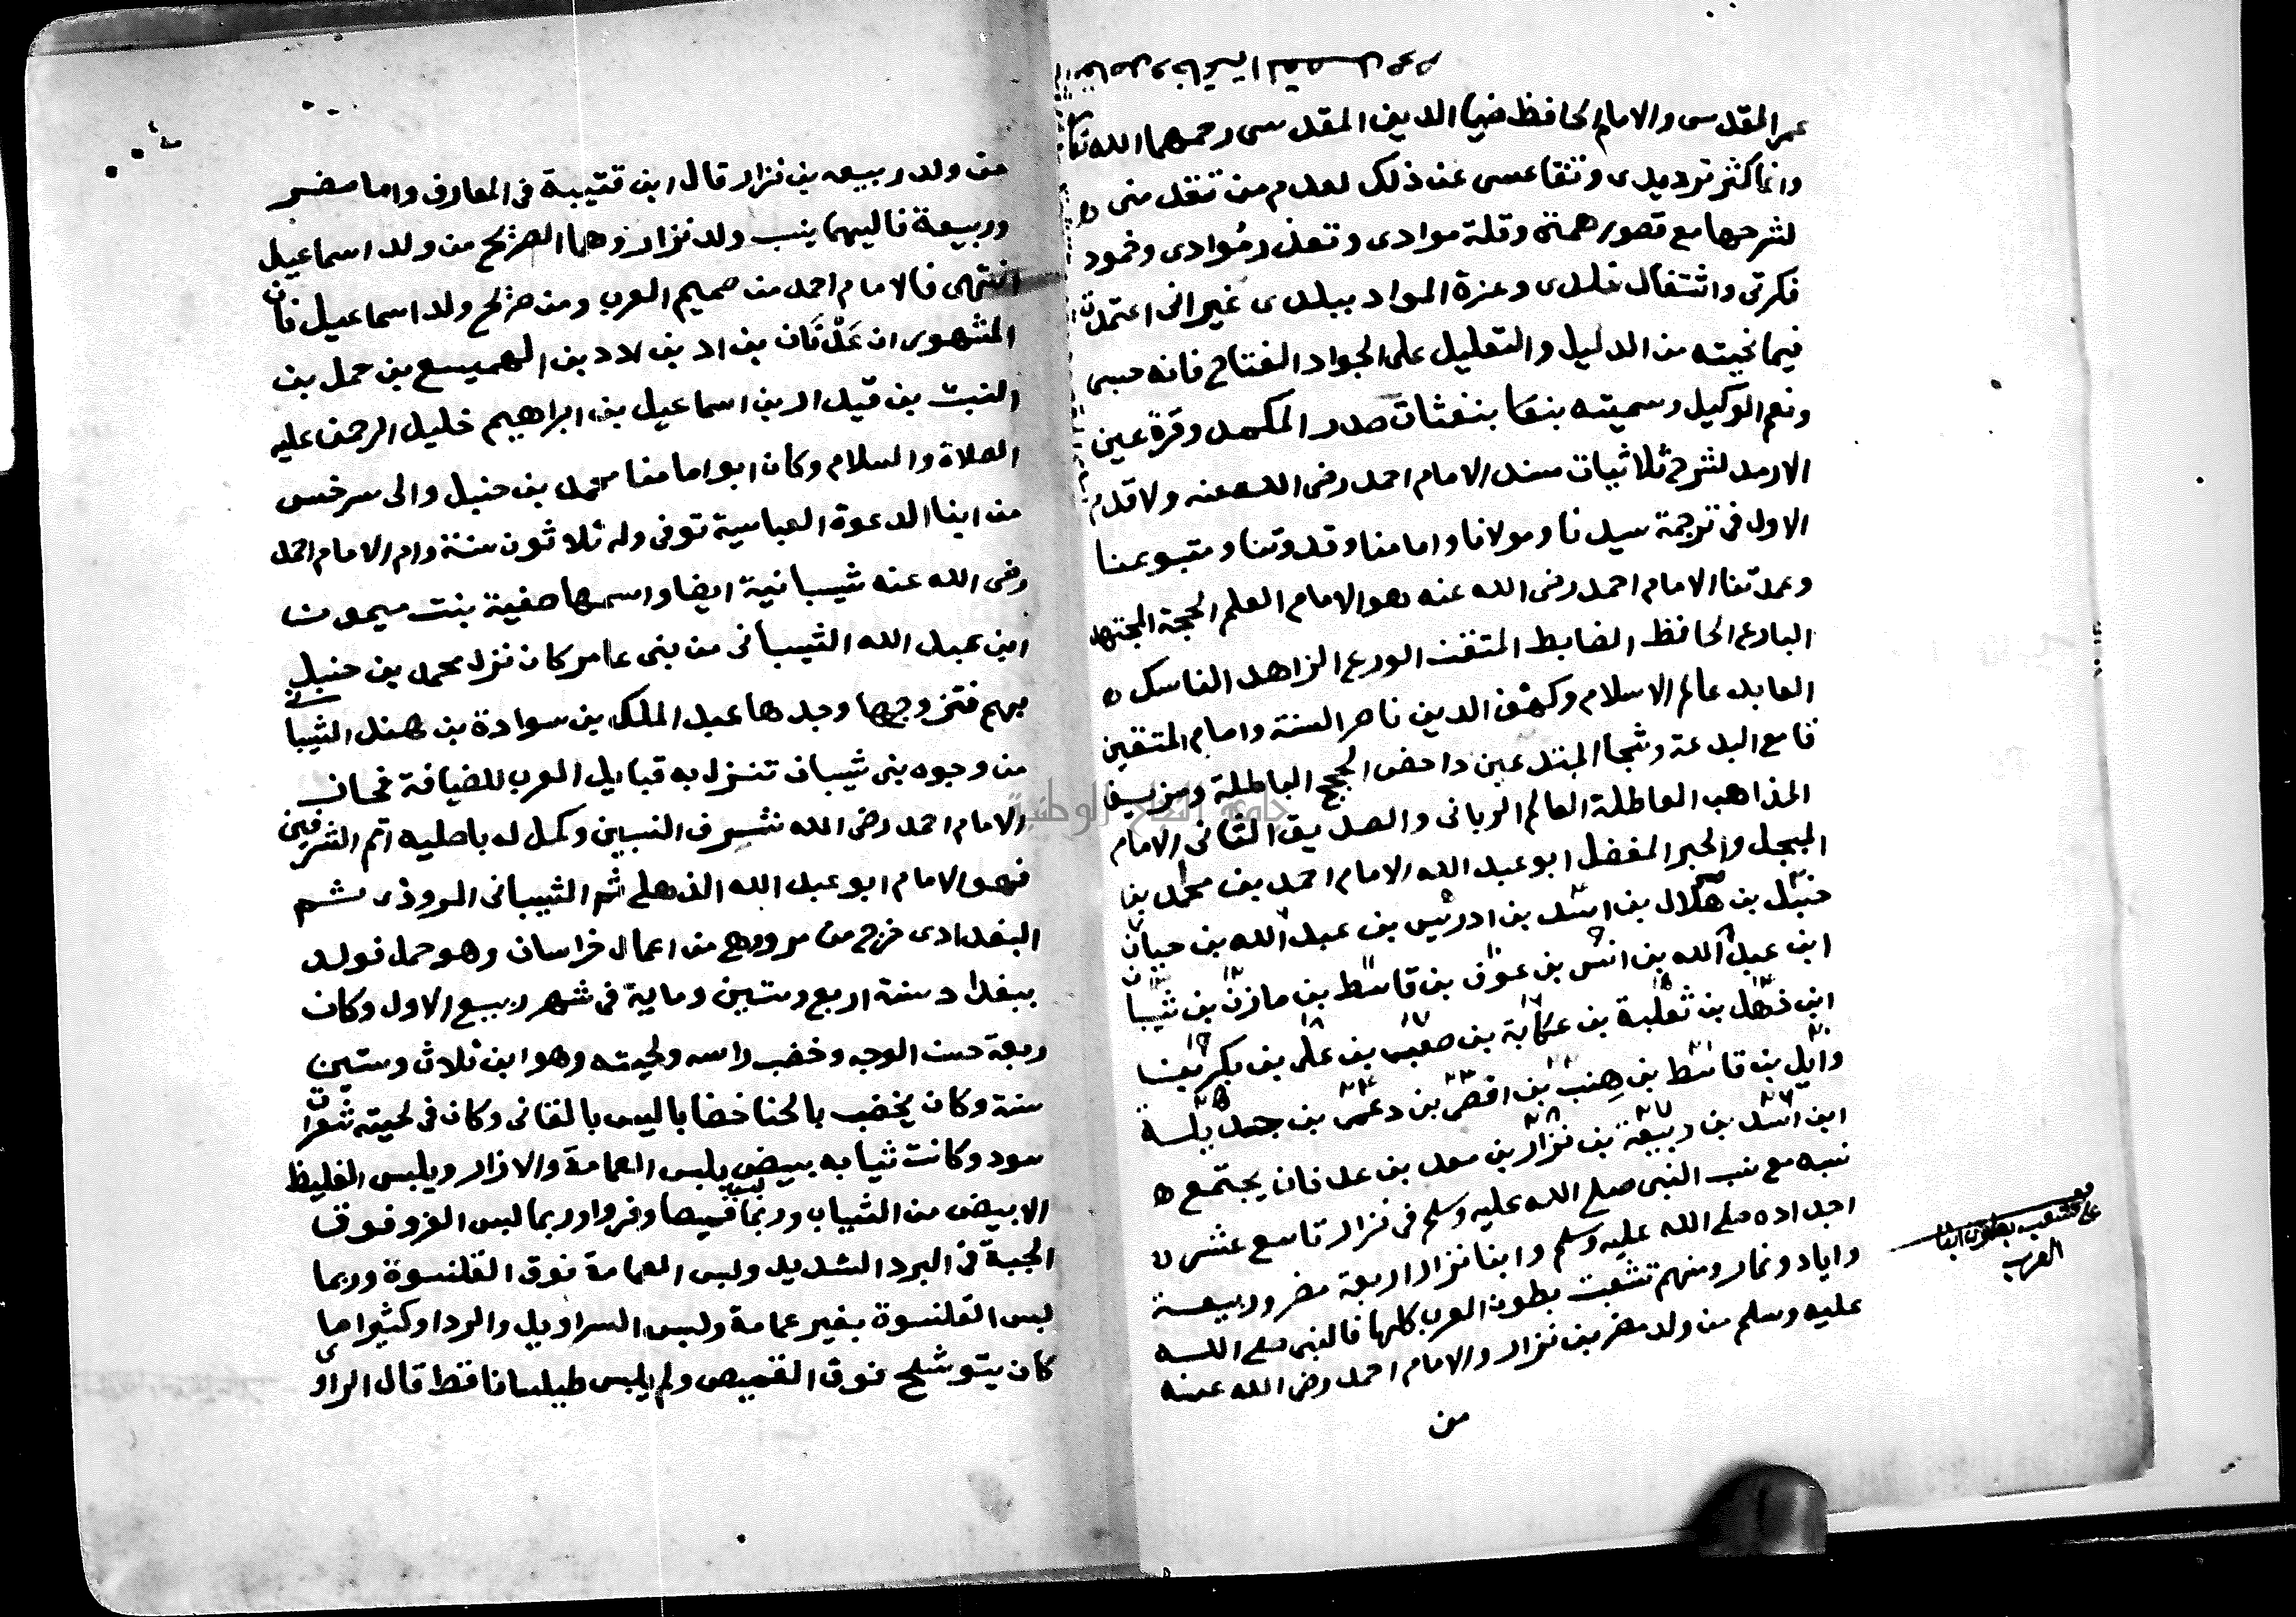 عمر المقدسي والامام الحافظ ضيا الدين المقدسي رحمهما الله تعا
وانما كثر ترديدي وتقاعسي عن ذلك لعدم من تقدمني
لشرحها مع قصور همتي وقلة موادي وتعذر مُوادي وخمود
فكرتي واشتغال خلدي وعزة المواد ببلدي غير اني اعتمدت
فيما نحيته من الدليل والتعليل على الجواد الفتاح فانه حسبي
ونعم الوكيل وسميته بنفثات صدر المكمد وقرة عين
الارمد لشرح ثلاثيات مسند الامام احمد رضي الله عنه ولا قدم
الاول في ترجمة سيدنا ومولانا وامامنا وقدوتنا ومتبوعنا
وعمدتنا الامام احمد رضي الله عنه هو الامام العلم الحجة المجتهد
البارع الحافظ الضابط المتقن الورع الزاهد الناسك
العابد عالم الاسلام وكهف الدين ناصر السنة وامام المتقين
قامع البدعة وشجا المبتدعين داحض الحجج الباطلة ومزيف
المذاهب العاطلة العالم الرباني والصديق الثاني الامام
المبجل والحبر المفضل ابو عبد الله الامام احمد بن محمد بن
حنبل بن هلال بن اسد بن ادريس بن عبد الله بن حيان
ابن عبد الله بن انس بن عوف بن قاسط بن مازن بن شيبان
ابن ذهل بن ثعلبة بن عكابة بن صعب بن علي بن بكر بن
وايل بن قاسط بن هنب بن افصى بن دعمي بن جديلة
ابن اسد بن ربيعة بن نزار بن معد بن عدنان يجتمع
نسبه مع نسب النبي صلى الله عليه وسلم في نزار تاسع عشر
اجداده صلى الله عليه وسلم وابنا نزار اربعة مضر وربيعة
واياد ونمار ومنهم تشعبت بطون العرب كلها فالنبي صلى الله
عليه وسلم من ولد مضر بن نزار والامام احمد رضي الله عنه
من
تشعب بطون
العرب
من ولد ربيعه بن نزار قال ابن قتيبة في المعارف واما مضر
وربيعة فاليهما ينسب ولد نزار وهما الصريح من ولد اسماعيل
انتهى فالامام احمد من صميم العرب ومن صريح ولد اسماعيل فان
المشهور ان عَدْنَان بن اد بن ادد بن الهميسع بن حمل بن
النبت بن قيدار بن اسماعيل بن ابراهيم خليل الرحمن عليه
الصلاة والسلام وكان ابو امامنا محمد بن حنبل والى سرخس
من ابنا الدعوة العباسية توفى وله ثلاثون سنة وام الامام احمد
رضي الله عنه شيبانية ايضا واسمها صفية بنت ميمونة
ابن عبد الله الشيباني من بني عامر كان نزل محمد بن حنبل
بهم فتزوجها وجدها عبد الملك بن سوادة بن هند الشيباني
من وجوه بني شيبان تنزل به قبايل العرب للضيافة فحاز
الامام احمد رضي الله شرف النسبين وكمل له باصليه اتم الشرفين
فهو الامام ابو عبد الله الذهلي ثم الشيباني المروذي ثم
البغدادي خرج من مرو من اعمال خراسان وهو حمل فولد
ببغداد سنة اربع وستين وماية في شهر ربيع الاول وكان
ربعة حسن الوجه وخضب راسه ولحيته وهو ابن ثلاث وستين
سنة وكان يخضب بالحنا خضابا ليس بالقاني وكان في لحيته شعرات
سود وكانت ثيابه بيض يلبس العمامة والازار ويلبس الغليظ
الابيض من الثياب وربما لبس قميصا وفروا وربما لبس الفرو فوق
الجبة في البرد الشديد ولبس العمامة فوق القلنسوة وربما
لبس القلنسوة بغير عمامة ولبس السراويل والردا وكثيرا ما
كان يتوشح فوق القميص ولم يلبس طيلسانا قط قال الراوي
جامعة النجاح الوطنية